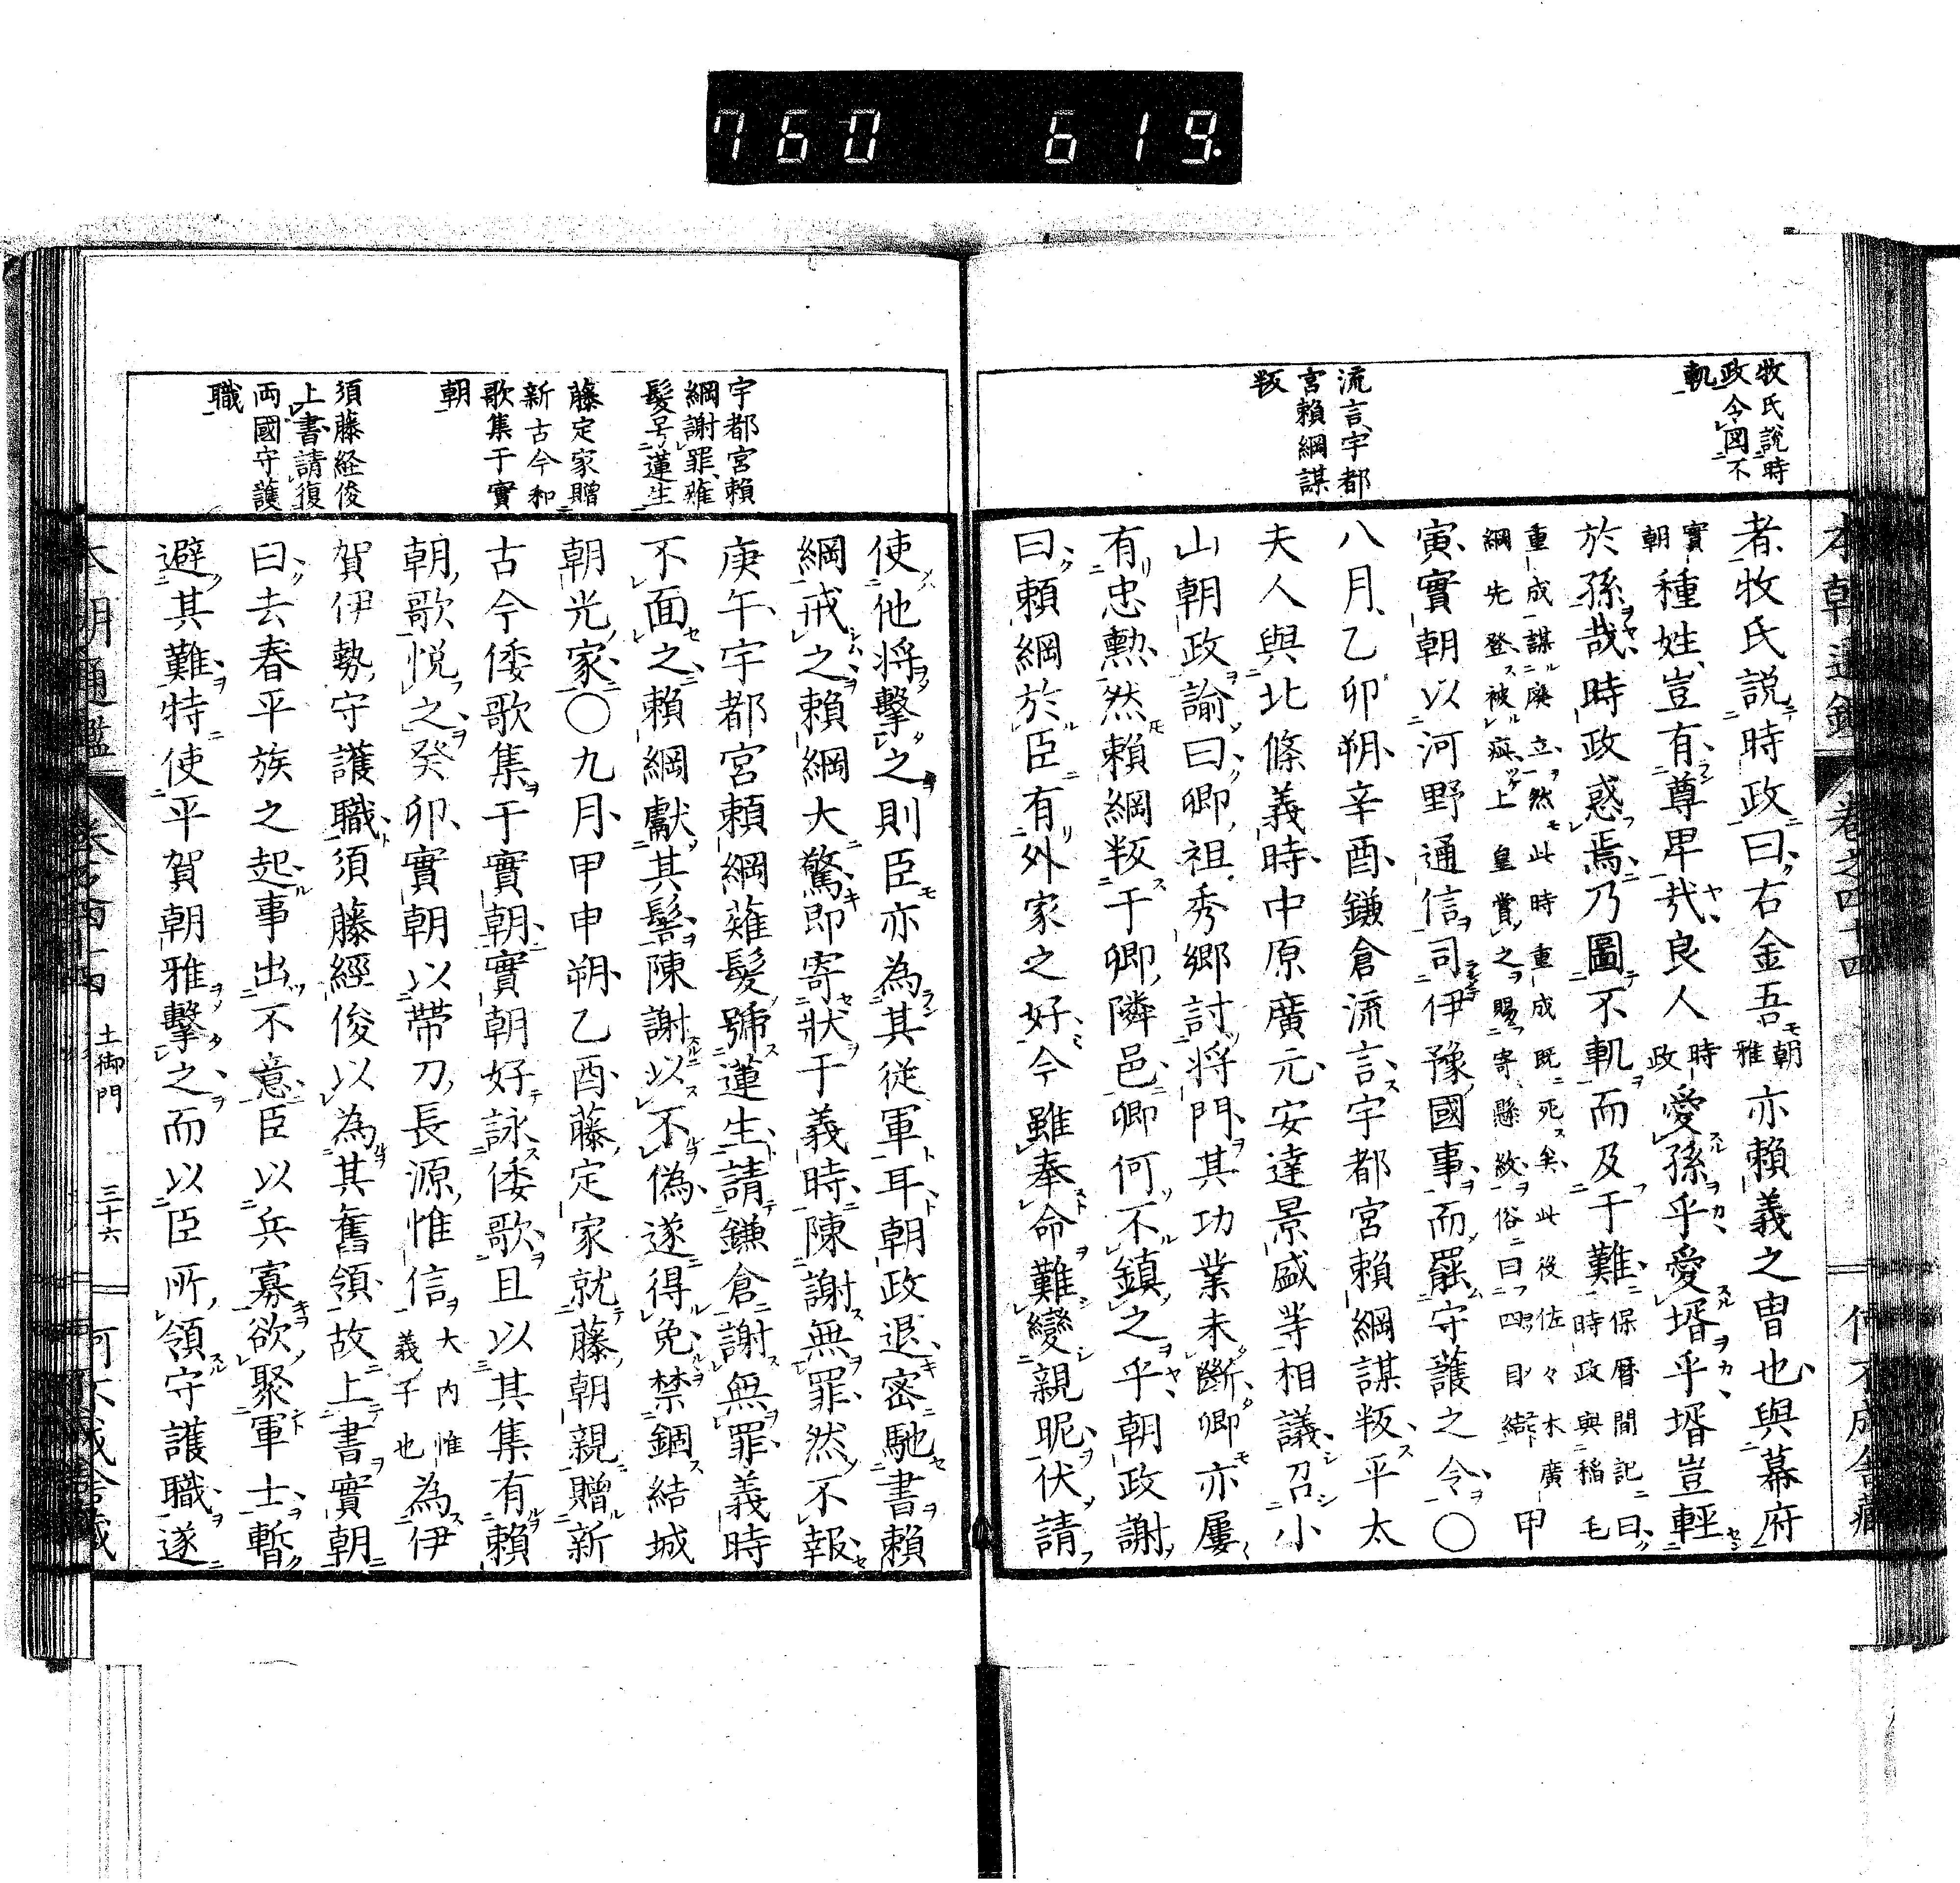 760 619
本朝通鑑 卷之四十四 何不成舍藏
牧氏說時
政令図不
軌
流言宇都
宮賴綱謀
叛
者牧氏說時政曰右金吾朝雅亦賴義之冑也與幕府
實朝種姓豈有尊卑哉良人時政愛孫乎愛壻乎壻豈輕
於孫哉時政惑焉乃圖不軌而及于難保曆間記曰時政與稲毛
重成謀廢立然此時重成既死矣此後佐々木廣
綱先登被疵上皇賞之賜寄懸紋俗曰四目結甲
寅實朝以河野通信司伊豫國事而罷守護之令〇
八月乙卯朔辛酉鎌倉流言宇都宮賴綱謀叛平太
夫人與北條義時中原廣元安達景盛等相議召小
山朝政諭曰卿祖秀郷討將門其功業未斷卿亦屢
有忠勲然賴綱叛于卿隣邑卿何不鎮之乎朝政謝
曰賴綱於臣有外家之好今雖奉命難變親昵伏請
宇都宮賴
綱謝罪薙
髮号蓮生
藤定家贈
新古今和
歌集于實
朝
須藤経俊
上書請復
両國守護
職
使他將擊之則臣亦為其従軍耳朝政退密馳書賴
綱戒之賴綱大驚即寄狀于義時陳謝無罪然不報
庚午宇都宮賴綱薙髮號蓮生請鎌倉謝無罪義時
不面之賴綱獻其髻陳謝以不偽遂得免禁錮結城
朝光家〇九月甲申朔乙酉藤定家就藤朝親贈新
古今倭歌集于實朝實朝好詠倭歌且以其集有賴
朝歌悦之癸卯實朝以帶刀長源惟信大内惟義子也為伊
賀伊勢守護職須藤經俊以為其舊領故上書實朝
曰去春平族之起事出不意臣以兵寡欲聚軍士暫
避其難特使平賀朝雅擊之而以臣所領守護職遂
土御門 三十六